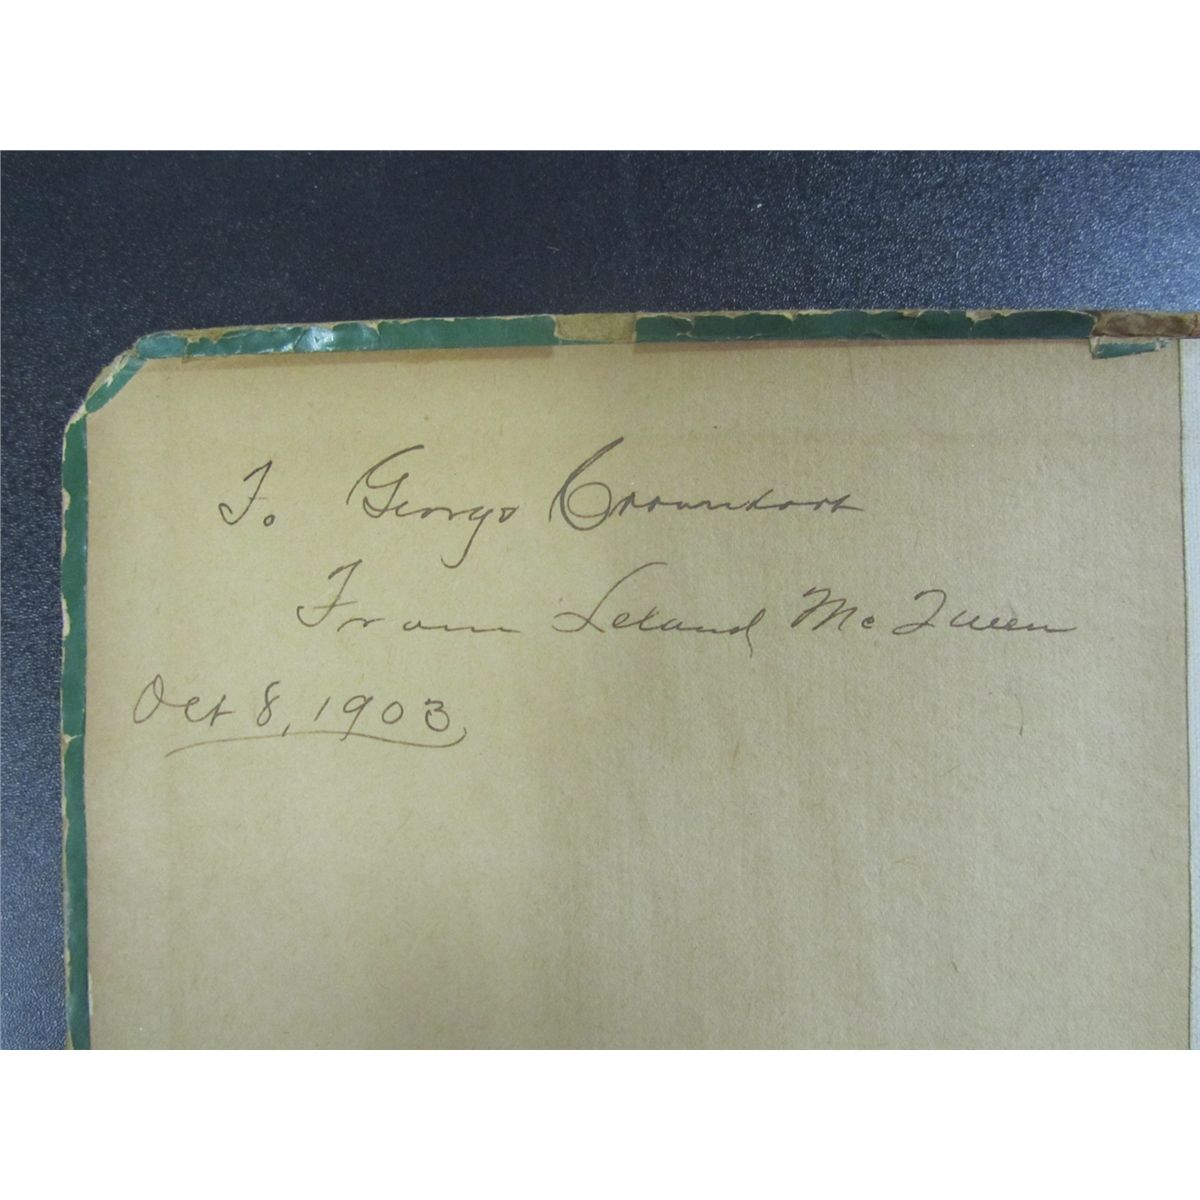 To George Crownhart
From Leland McQueen
Oct 8, 1903